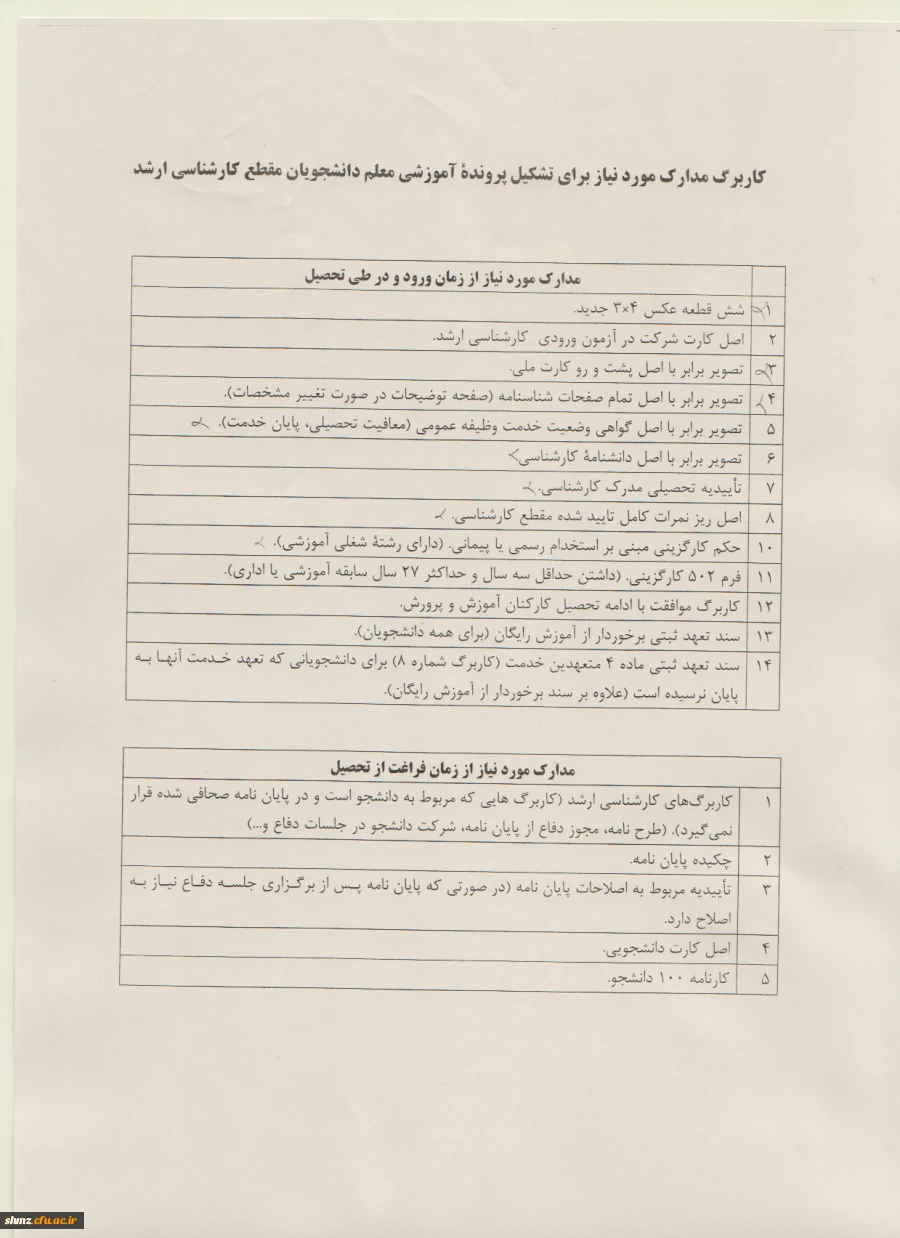 کاربرگ مدارک مورد نیاز برای تشکیل پروندهٔ آموزشی معلم دانشجویان مقطع کارشناسی ارشد
مدارک مورد نیاز از زمان ورود و در طی تحصیل
۱ شش قطعه عکس ۴×۳ جدید.
۲ اصل کارت شرکت در آزمون ورودی کارشناسی ارشد.
۳ تصویر برابر با اصل پشت و رو کارت ملی.
۴ تصویر برابر با اصل تمام صفحات شناسنامه (صفحه توضیحات در صورت تغییر مشخصات).
۵ تصویر برابر با اصل گواهی وضعیت خدمت وظیفه عمومی (معافیت تحصیلی، پایان خدمت).
۶ تصویر برابر با اصل دانشنامهٔ کارشناسی
۷ تأییدیه تحصیلی مدرک کارشناسی.
۸ اصل ریز نمرات کامل تایید شده مقطع کارشناسی.
۱۰ حکم کارگزینی مبنی بر استخدام رسمی یا پیمانی. (دارای رشتهٔ شغلی آموزشی).
۱۱ فرم ۵۰۲ کارگزینی. (داشتن حداقل سه سال و حداکثر ۲۷ سال سابقه آموزشی یا اداری).
۱۲ کاربرگ موافقت با ادامه تحصیل کارکنان آموزش و پرورش.
۱۳ سند تعهد ثبتی برخوردار از آموزش رایگان (برای همه دانشجویان).
۱۴ سند تعهد ثبتی ماده ۴ متعهدین خدمت (کاربرگ شماره ۸) برای دانشجویانی که تعهد خدمت آنها به
پایان نرسیده است (علاوه بر سند برخوردار از آموزش رایگان).
مدارک مورد نیاز از زمان فراغت از تحصیل
۱ کاربرگ‌های کارشناسی ارشد (کاربرگ هایی که مربوط به دانشجو است و در پایان نامه صحافی شده قرار
نمی‌گیرد). (طرح نامه، مجوز دفاع از پایان نامه، شرکت دانشجو در جلسات دفاع و...)
۲ چکیده پایان نامه.
۳ تأییدیه مربوط به اصلاحات پایان نامه (در صورتی که پایان نامه پس از برگزاری جلسه دفاع نیاز به
اصلاح دارد.
۴ اصل کارت دانشجویی.
۵ کارنامه ۱۰۰ دانشجو.
shmz.cfu.ac.ir